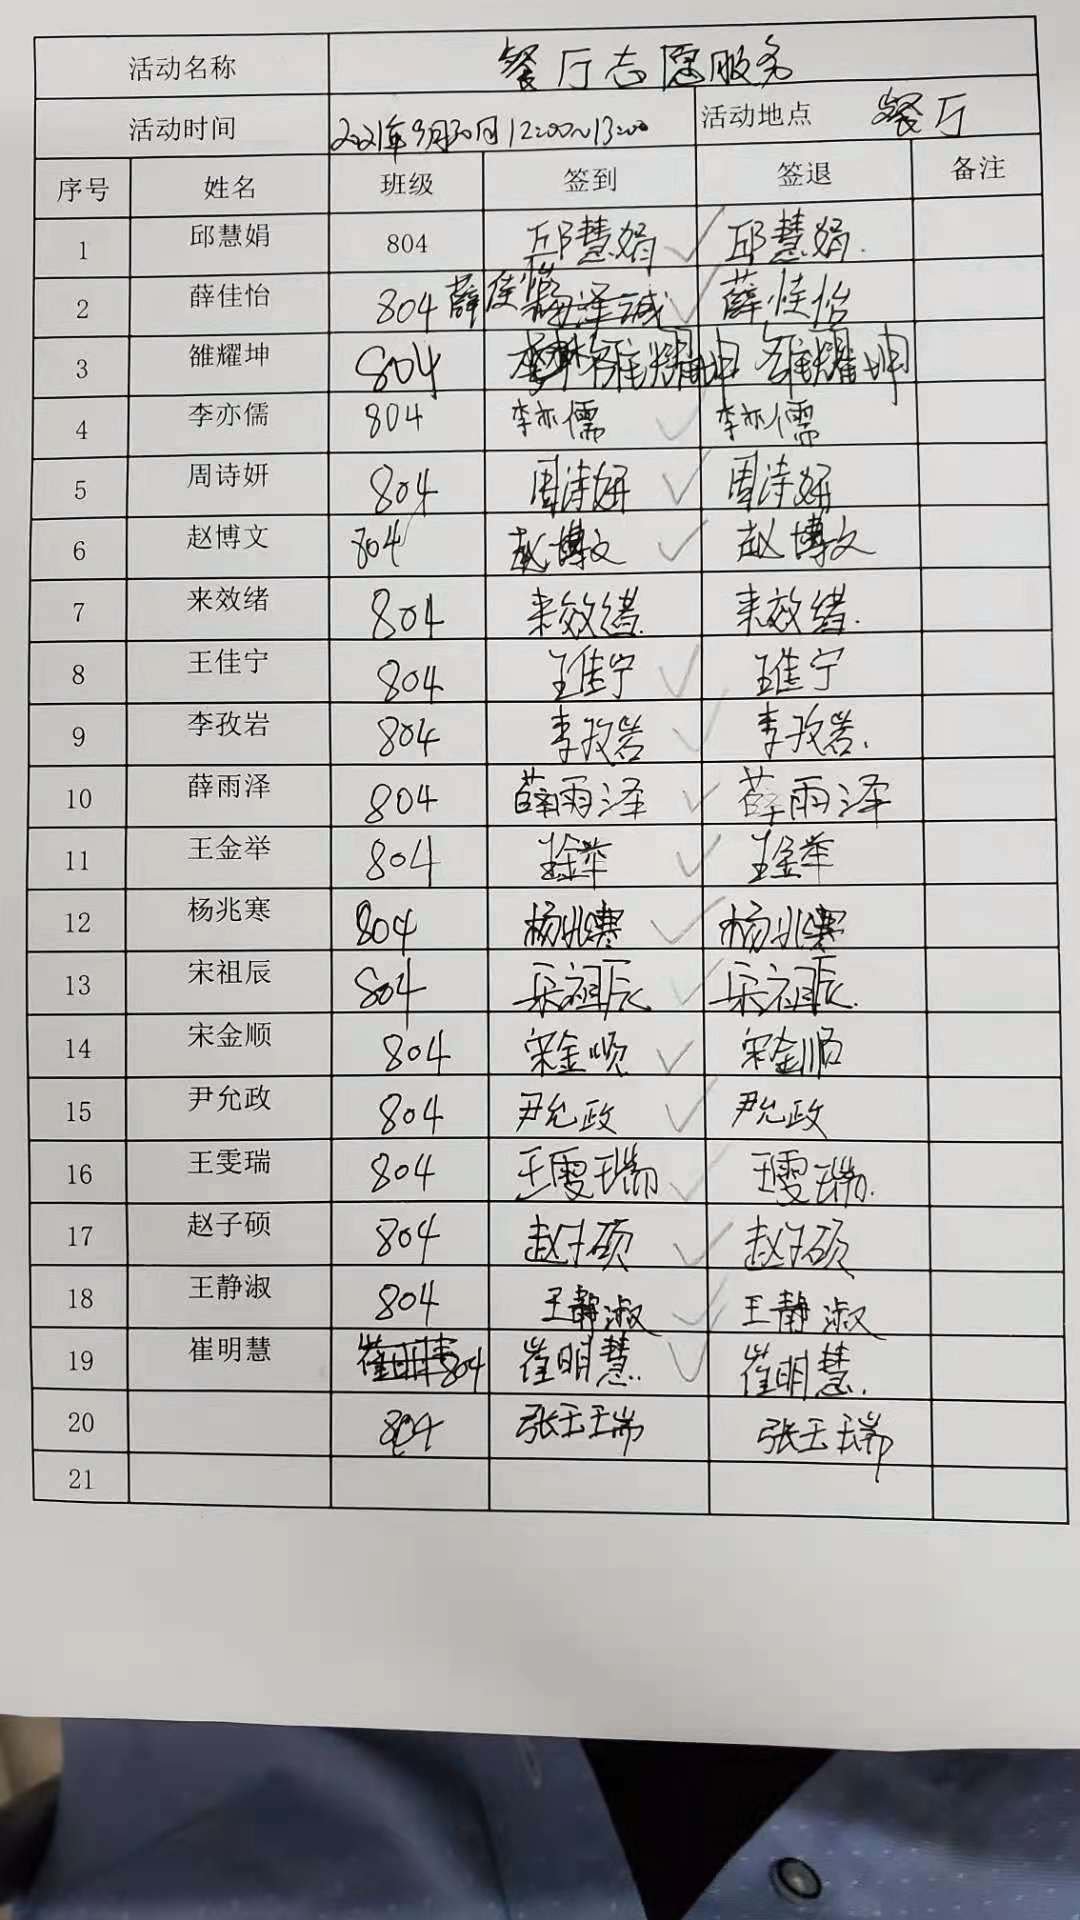 活动名称 餐厅志愿服务
活动时间 2021年9月30日12:00~13:00 活动地点 餐厅
序号 姓名 班级 签到 签退 备注
1 邱慧娟 804 邱慧娟 邱慧娟.
2 薛佳怡 804 薛佳怡 薛佳怡
3 雒耀坤 804 雒耀坤 雒耀坤
4 李亦儒 804 李亦儒 李亦儒
5 周诗妍 804 周诗妍 周诗妍
6 赵博文 804 赵博文 赵博文
7 来效绪 804 来效绪. 来效绪.
8 王佳宁 804 王佳宁 王佳宁
9 李孜岩 804 李孜岩 李孜岩.
10 薛雨泽 804 薛雨泽 薛雨泽
11 王金举 804 王金举 王金举
12 杨兆寒 804 杨兆寒 杨兆寒
13 宋祖辰 804 宋祖辰 宋祖辰.
14 宋金顺 804 宋金顺 宋金顺
15 尹允政 804 尹允政 尹允政
16 王雯瑞 804 王雯瑞 王雯瑞.
17 赵子硕 804 赵子硕 赵子硕
18 王静淑 804 王静淑 王静淑
19 崔明慧 804 崔明慧. 崔明慧.
20 804 张玉瑞 张玉瑞
21